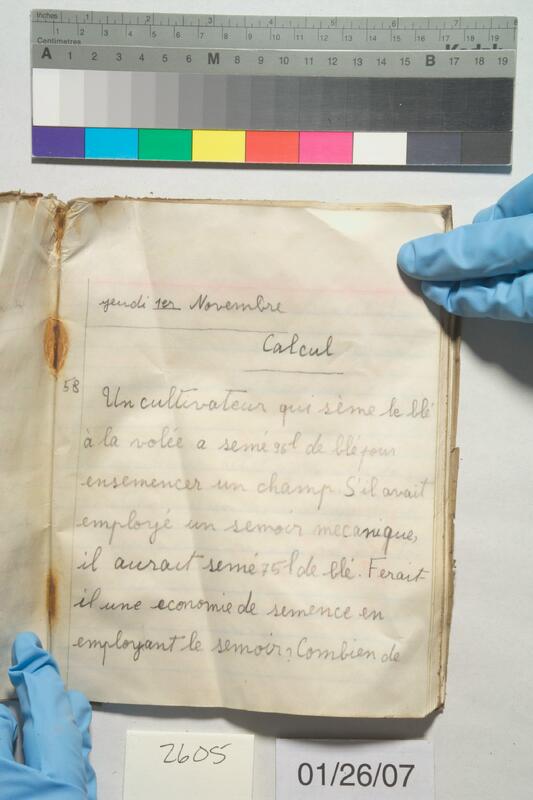 inches 1 2 3 4 5 6 7 8
Centimetres 1 2 3 4 5 6 7 8 9 10 11 12 13 14 15 16 17 18 19
Kodak
A 1 2 3 4 5 6 M 8 9 10 11 12 13 14 15 B 17 18 19
jeudi 1er Novembre
Calcul
58
Un cultivateur qui sème le blé
à la volée a semé 96l de blé pour
ensemencer un champ. S'il avait
employé un semoir mecanique,
il aurait semé 75l de blé. Ferait-
il une economie de semence en
employant le semoir? Combien de
2605
01/26/07